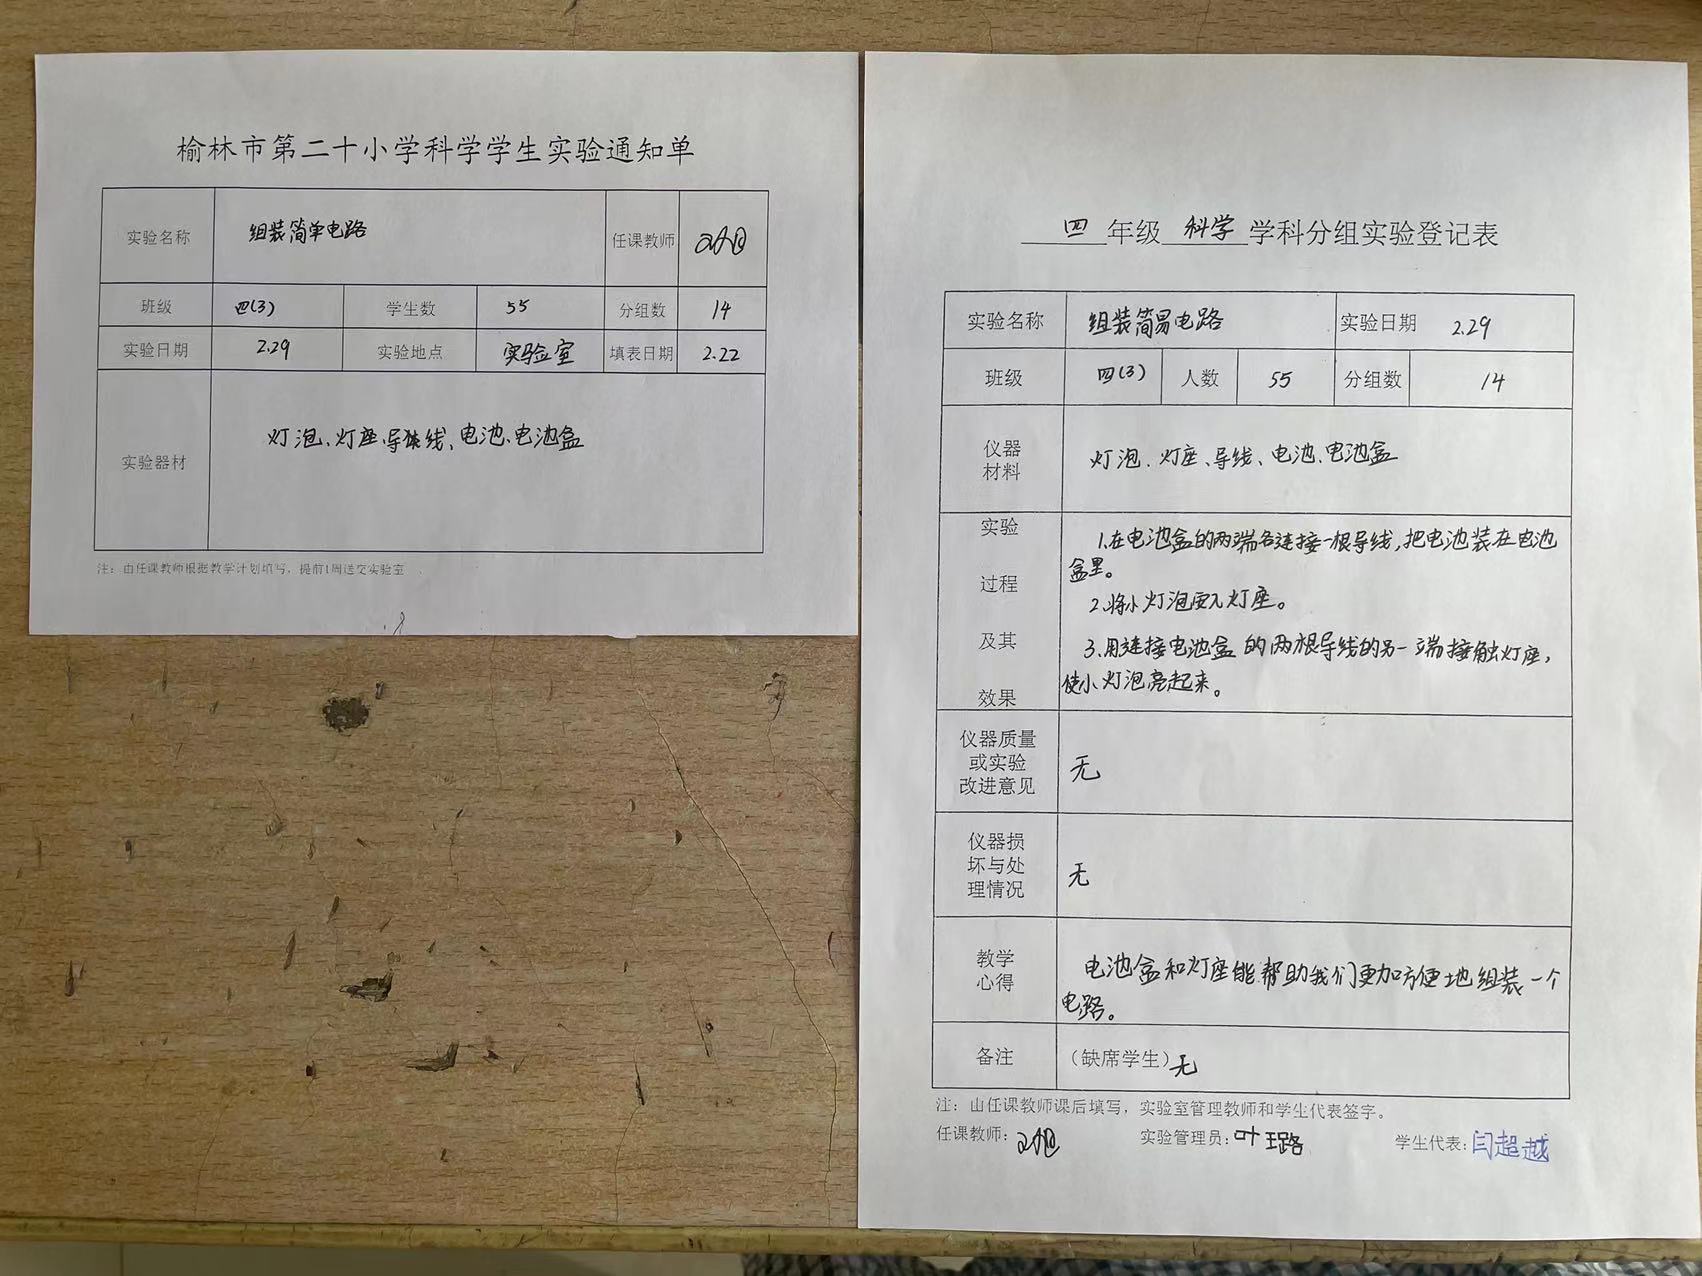 榆林市第二十小学科学学生实验通知单
实验名称 组装简单电路 任课教师
班级 四(3) 学生数 55 分组数 14
实验日期 2.29 实验地点 实验室 填表日期 2.22
实验器材 灯泡、灯座、导线、电池、电池盒
注：由任课教师根据教学计划填写，提前1周送交实验室
四 年级 科学 学科分组实验登记表
实验名称 组装简易电路 实验日期 2.29
班级 四(3) 人数 55 分组数 14
仪器
材料
灯泡、灯座、导线、电池、电池盒
实验
过程
及其
效果
1.在电池盒的两端各连接一根导线,把电池装在电池
盒里。
2.将小灯泡安入灯座。
3.用连接电池盒的两根导线的另一端接触灯座,
使小灯泡亮起来。
仪器质量
或实验
改进意见
无
仪器损
坏与处
理情况
无
教学
心得
电池盒和灯座能帮助我们更加方便地组装一个
电路。
备注 （缺席学生）无
注：由任课教师课后填写，实验室管理教师和学生代表签字。
任课教师: 实验管理员:叶珏路 学生代表:闫超越